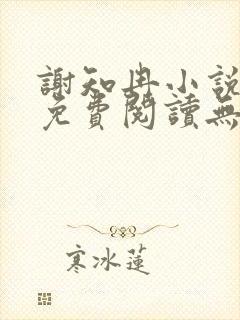 謝知冉小說
免費閱讀無
寒冰蓮